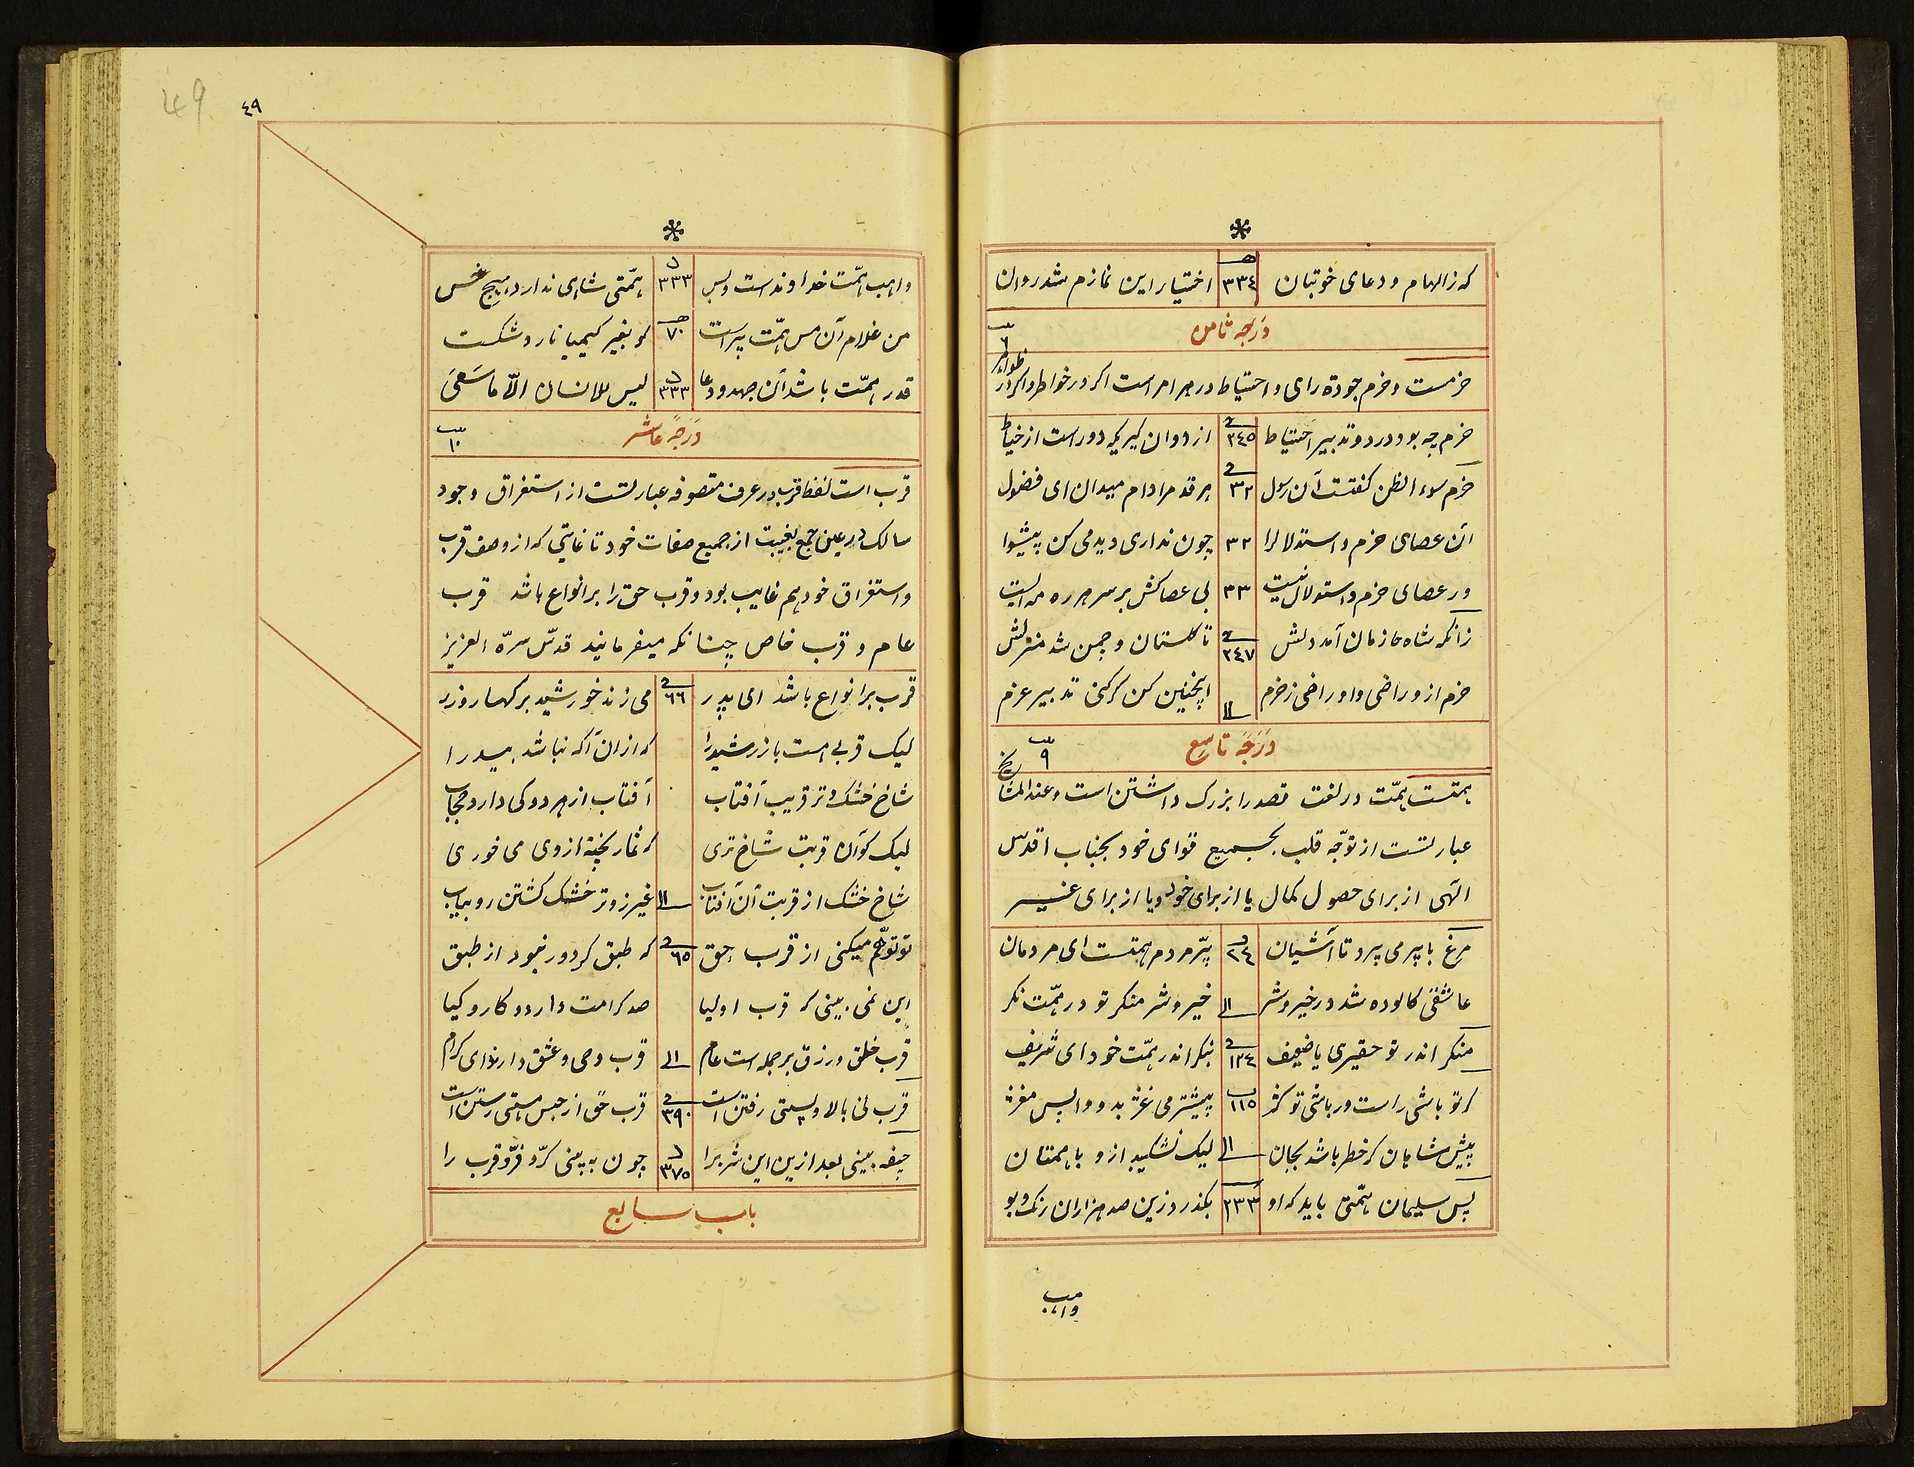 که ز الهام و دعای خوبتان ۳۳٤ اختیار این نمازم شد روان
درجه ثامن
٦
حزمست و حزم جودة رای و احتیاط در هر امر است اگر در خواطر و اگر در ظواهر
حزم چه بود در دو تدبیر احتیاط ۲٤٥ از دوان گیری که دور است از خباط
حزم سوء الظن گفتست آن رسول ۳۲ هر قدم را دام میدان ای فضول
آن عصای حزم و استدلال را ۳۲ چون نداری دید می کن پیشوا
ور عصای حزم و استدلال نیست ۳۳ بی عصاکش بر سر هر ره مه ایست
زانکه شاه حازمان آمد دلش ۲٤۷ تا گلستان و چمن شد منزلش
حزم ازو راضی و او راضی ز حزم اینچنین کن گر کنی تدبیر عزم
درجه تاسع
۹
همتست همّت در لغت قصد را بزرگ داشتن است و عند المشایخ
عبارتست از توجّه قلب بجمیع قوای خود بجناب اقدس
الهی از برای حصول کمال یا از برای خود و یا از برای غیر
مرغ با پر می پرد تا آشیان ۲٤ پرّ مردم همتست ای مردمان
عاشقی کالوده شد در خیر و شر خیر و شر منگر تو در همّت نگر
منگر اندر تو حقیری یا ضعیف ۱۲٤ بنگر اندر همّت خود ای شریف
گر تو باشی راست ور باشی تو کژ ۱۱٥ پیشتر می غژ بدو واپس مغژ
پیش شاهان گر خطر باشد بجان لیک نشکیبد ازو با همتان
پس سلیمان همّتی باید که او ۲۳۳ بگذرد زین صد هزاران رنگ و بو
واهب
٤۹
49
واهب همّت خداوندست و بس ۳۳۳ همّتی شاهی ندارد هیچ خس
من غلام آن مس همّت پرست ۷۰ کو بغیر کیمیا نارد شکست
قدر همّت باشد آن جهد و دعا ۳۳۳ لیس للانسان الّا ما سَعی
درجه عاشر
۱۰
قرب است لفظ قرب در عرف متصوفه عبارتست از استغراق وجود
سالک در عین جمع بغیبت از جمیع صفات خود تا غایتی که از وصف قرب
و استغراق خود هم غایب بود و قرب حق را بر انواع باشد قرب
عام و قرب خاص چنانکه میفرمایند قدّس سرّه العزیز
قرب بر انواع باشد ای پدر ٦٦ می زند خورشید بر کهسار و زر
لیک قربی هست با زر شید را که از آن آگه نباشد بید را
شاخ خشک و تر قریب آفتاب آفتاب از هر دو کی دارد حجاب
لیک کو آن قربت شاخ تری که ثمار پخته از وی می خوری
شاخ خشک از قربت آن آفتاب غیر زوتر خشک گشتن رو بیاب
تو توهّم میکنی از قرب حق ٦٥ که طبق گر دور نبود از طبق
این نمی بینی که قرب اولیا صد کرامت دارد و کار و کیا
قرب خلق و رزق بر جمله است عام قرب وحی و عشق دارند ای کرام
قرب نی بالا و پستی رفتن است ۳۹۰ قرب حق از حبس هستی رستن است
جیفه بینی بعد ازین این شرب را ۳۷٥ چون به بینی کرّ و فرّ قرب را
باب سابع